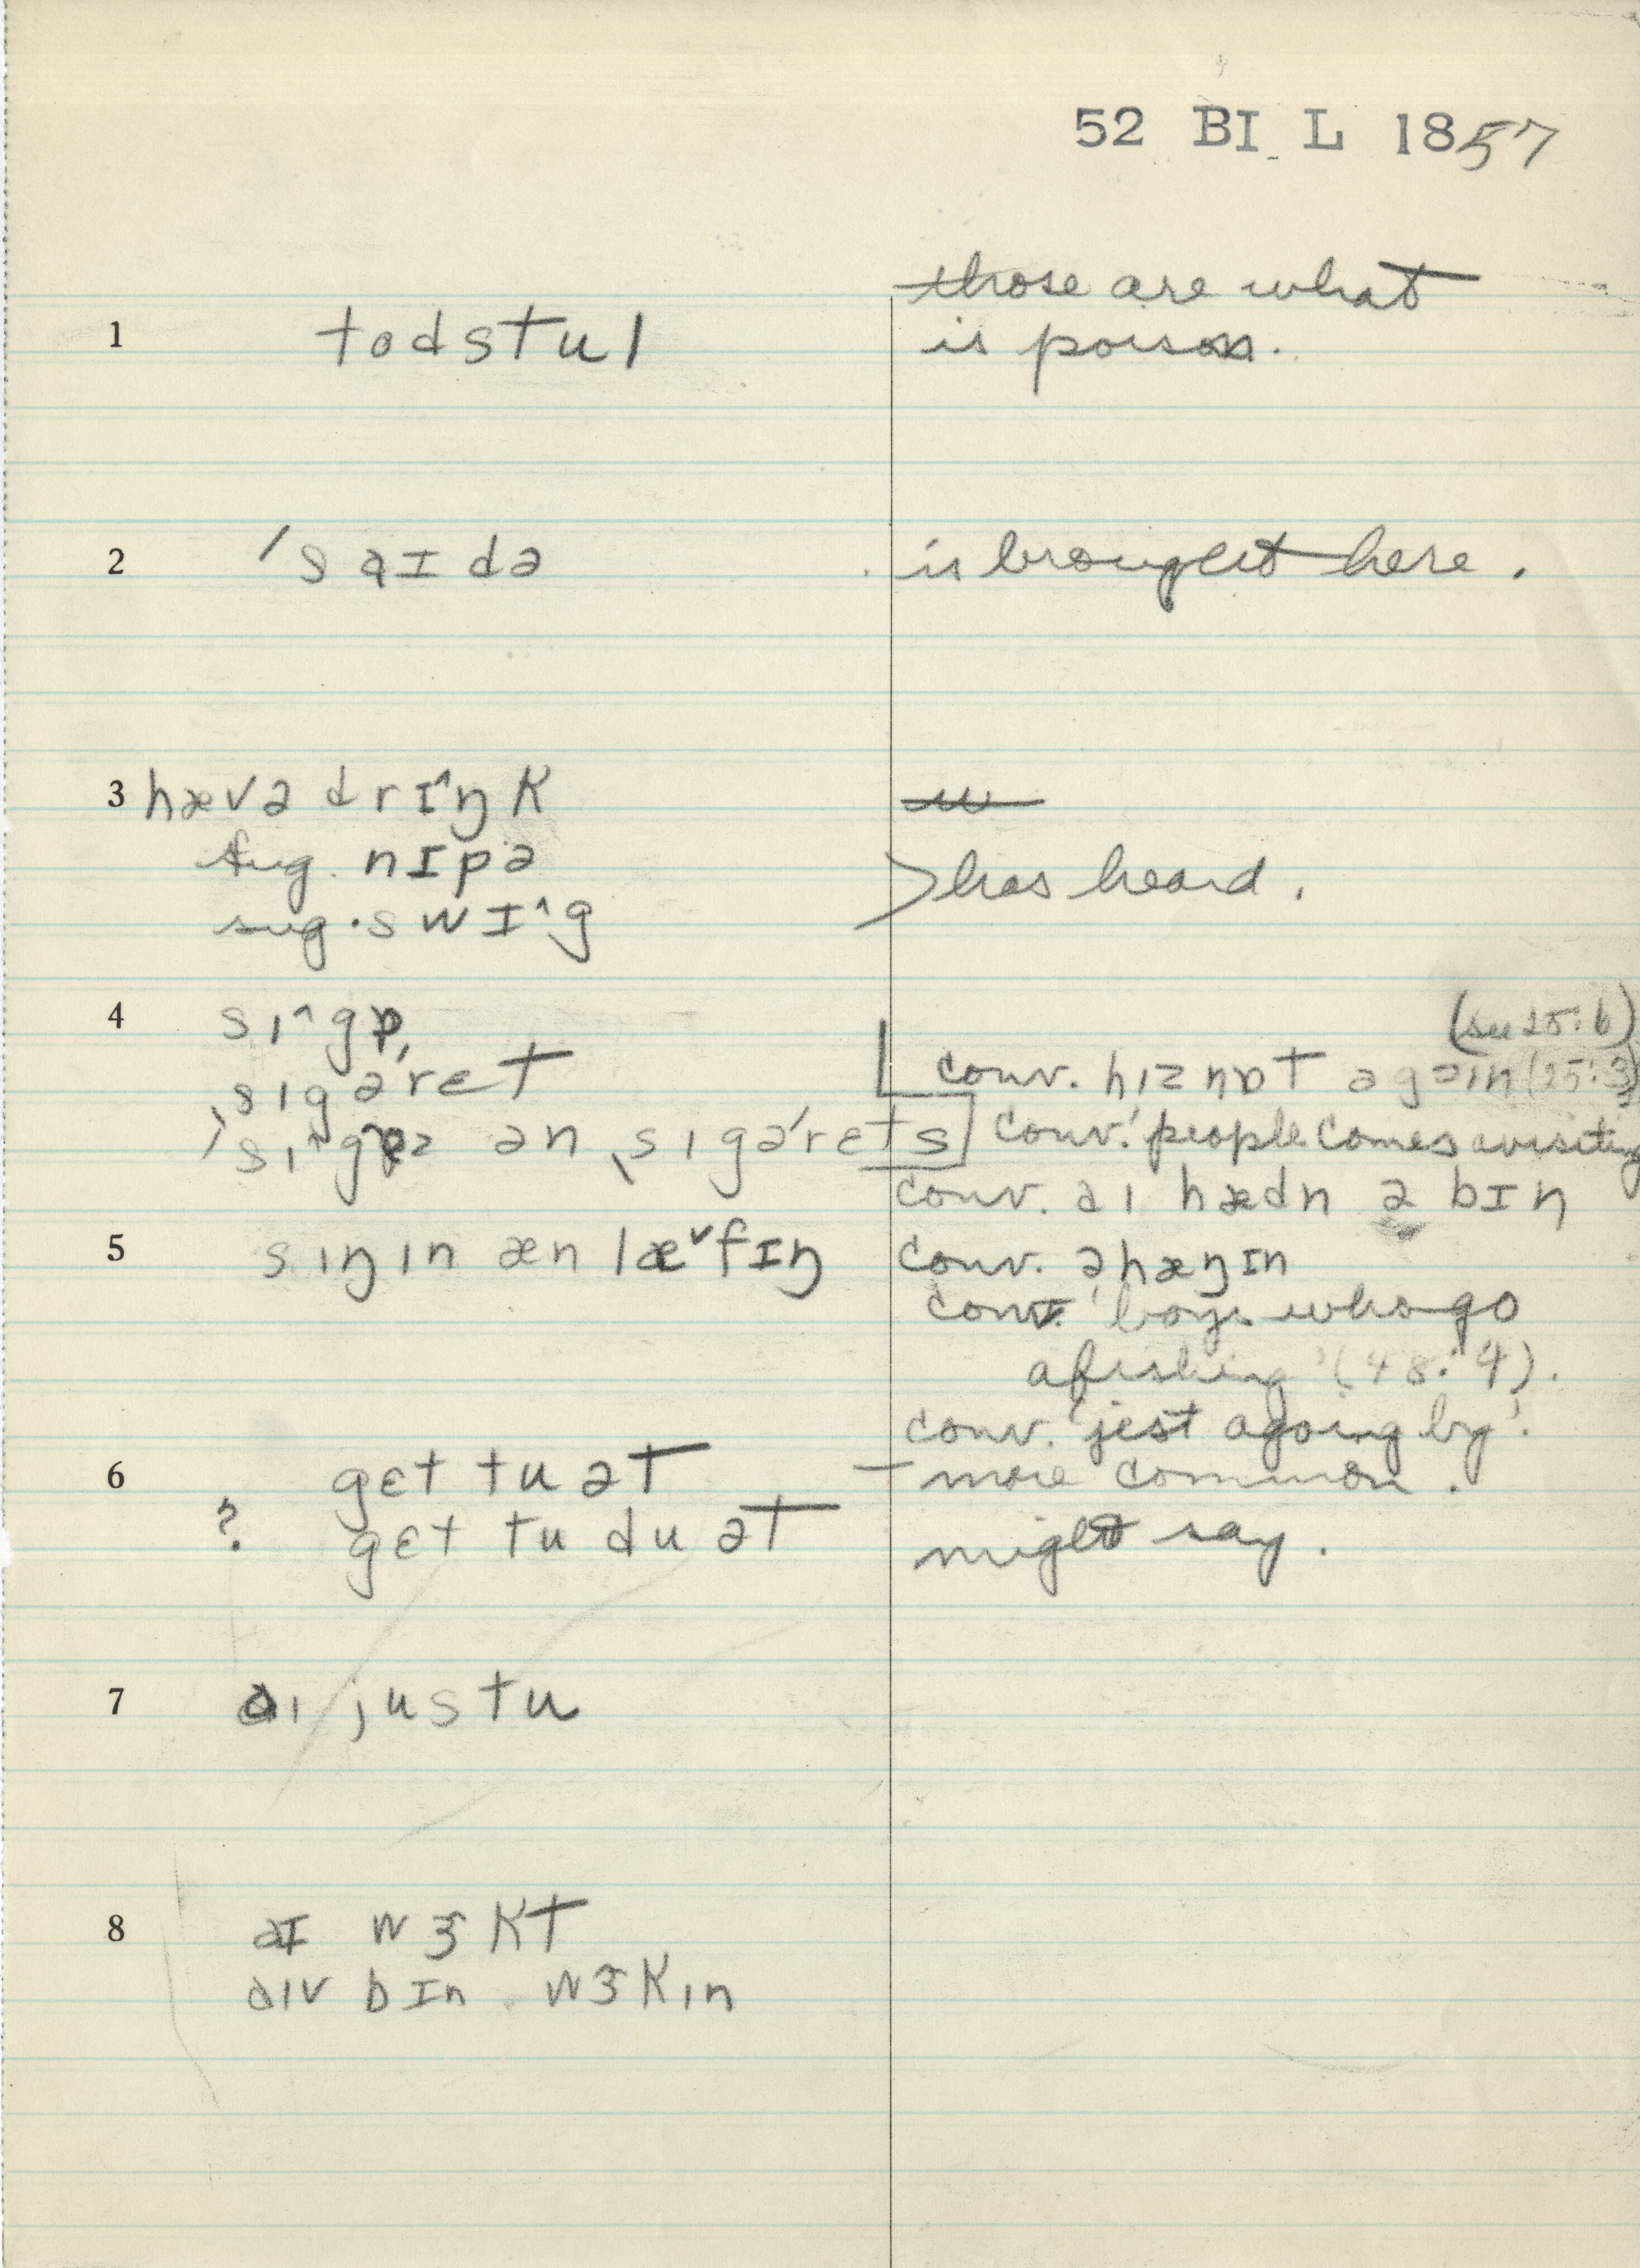 52 BI L 1857
those are what
1 todstul is poison.
2 'saɪdə is brought here.
3 hævə drɪ^ŋk
sug. nɪpə > has heard.
sug. swɪ^g
4 (see 25:6)
ˌsigə'rɛt conv. hiz nɒt əgəin (25:3)
ən ˌsigə'rɛts conv. 'people comes avisiting
conv. əi hædn ə bɪn
5 siŋin æn læ˅fɪŋ conv. əhæŋɪn
conv. 'boys who go
afishing' (48:4).
conv. 'jest agoing by'.
6 gɛt tu ət – more common.
? gɛt tu du ət might say.
7 ai justu
8 əɪ wɜkt
əiv bɪn wɜkin